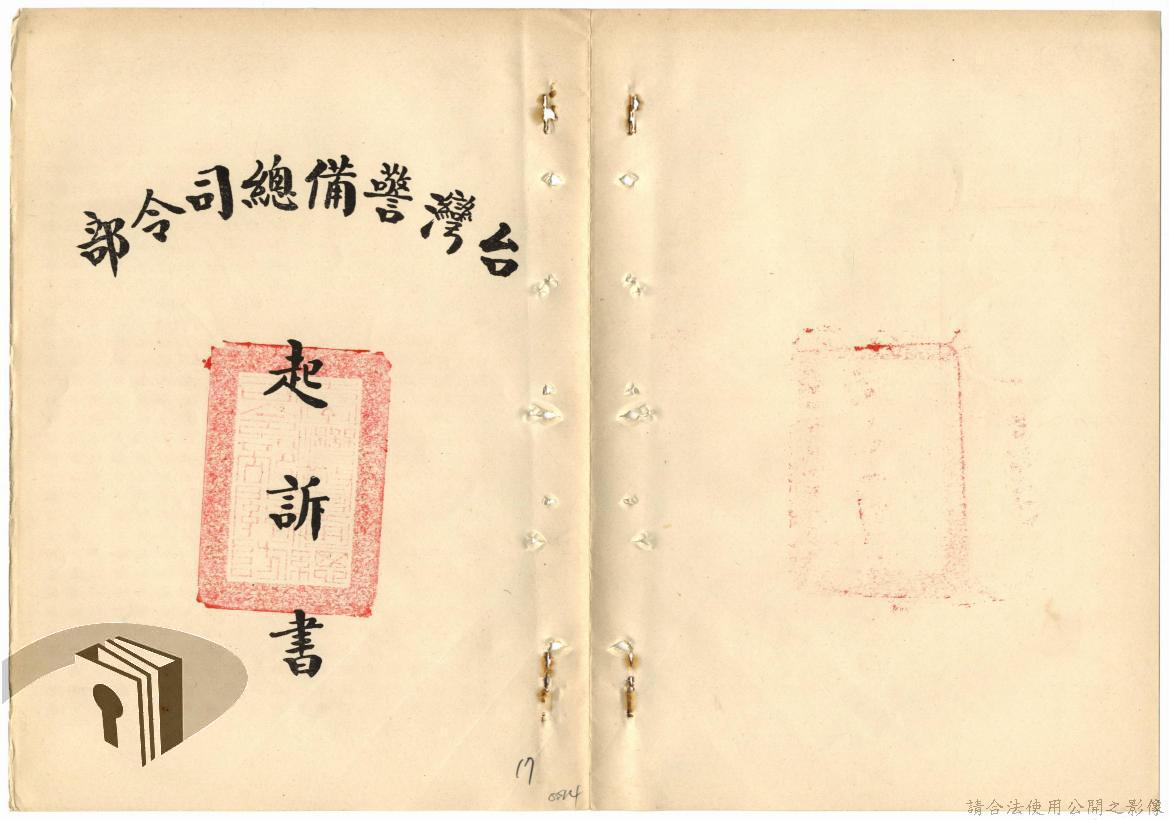 台灣警備總司令部
起訴書
17
請合法使用公開之影像